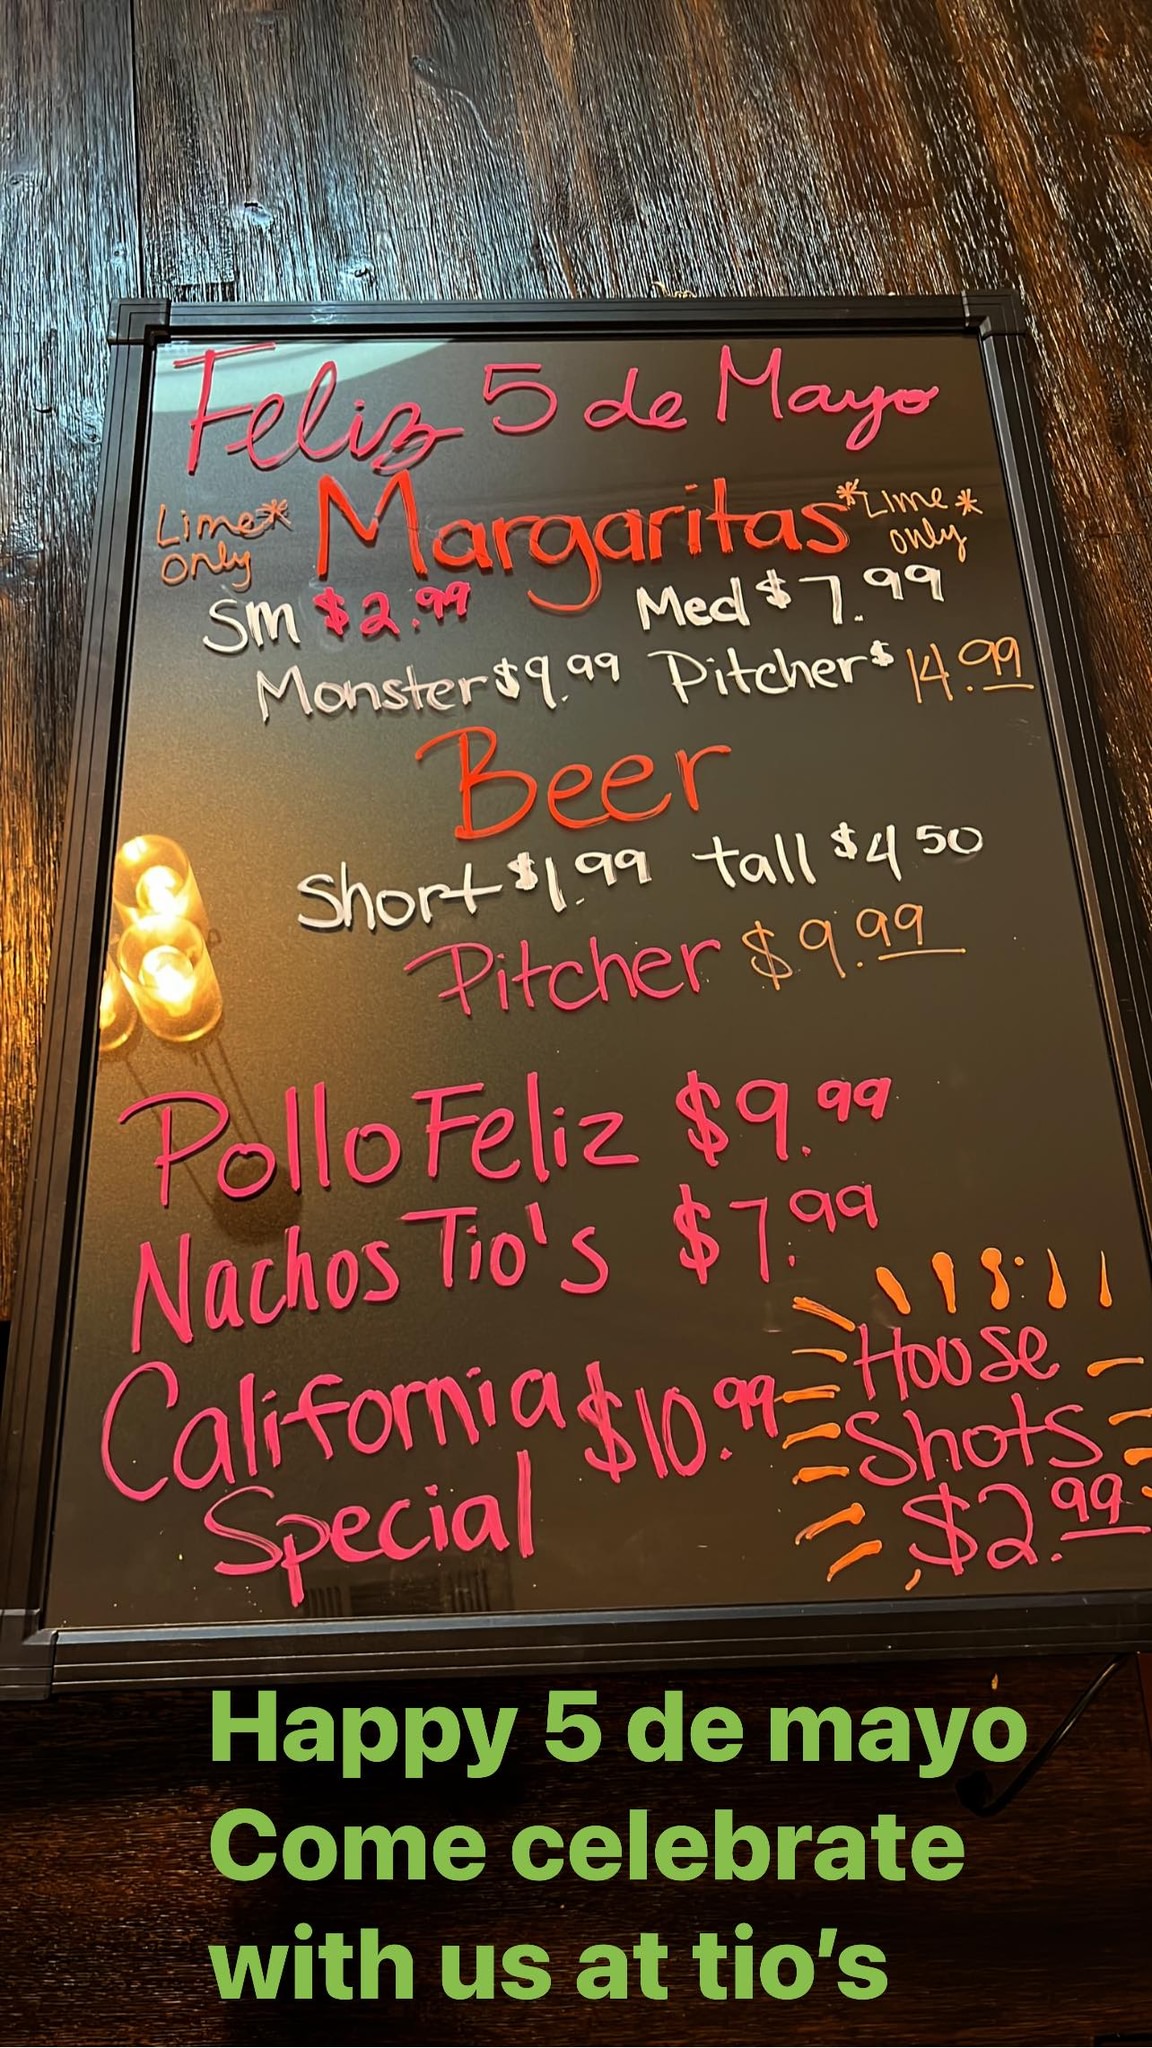 Feliz 5 de Mayo
Lime* only Margaritas *Lime* only
Sm $2.99 Med $7.99
Monster $9.99 Pitcher $14.99
Beer
Short $1.99 tall $4.50
Pitcher $9.99
Pollo Feliz $9.99
Nachos Tio's $7.99
California Special $10.99
House
Shots
$2.99
Happy 5 de mayo
Come celebrate
with us at tio’s